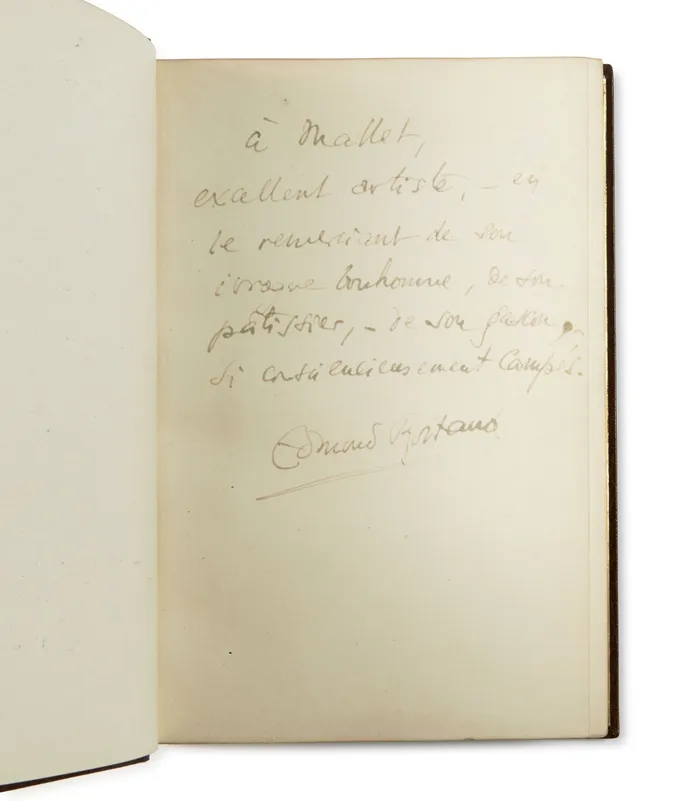 à Mallet,
excellent artiste, – en
le remerciant de son
ivrogne bonhomme, de son
pâtissier, – de son gascon,
si consciencieusement campés.
Edmond Rostand